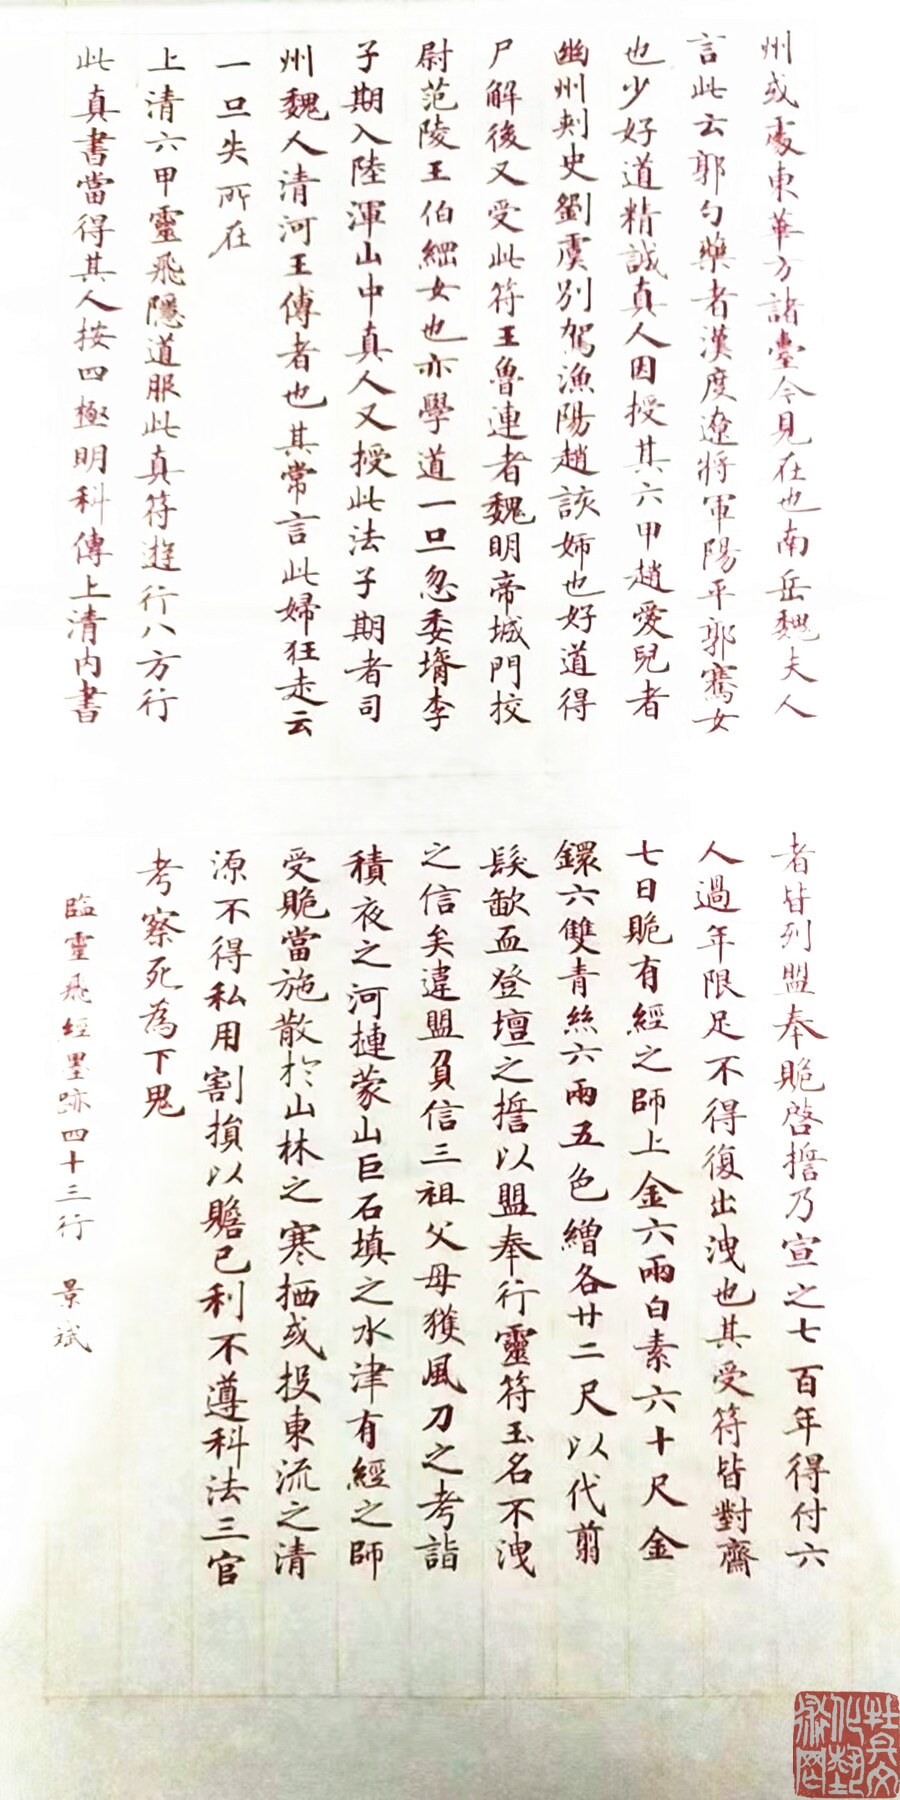 州或處東華方諸臺今見在也南岳魏夫人
言此云郭勺藥者漢度遼將軍陽平郭騫女
也少好道精誠真人因授其六甲趙愛兒者
幽州刾史劉虞別駕漁陽趙該姉也好道得
尸解後又受此符王魯連者魏明帝城門校
尉范陵王伯綱女也亦學道一旦忽委壻李
子期入陸渾山中真人又授此法子期者司
州魏人清河王傳者也其常言此婦狂走云
一旦失所在
上清六甲靈飛隱道服此真符遊行八方行
此真書當得其人按四極明科傳上清内書
者皆列盟奉貺啓擔乃宣之七百年得付六
人過年限足不得復出洩也其受符皆對齋
七日貺有經之師上金六兩白素六十尺金
鐶六雙青絲六兩五色繒各廿二尺以代翦
髮歃血登壇之擔以盟奉行靈符玉名不洩
之信矣違盟負信三祖父母獲風刀之考詣
積夜之河揵蒙山巨石填之水津有經之師
受貺當施散於山林之寒栖或投東流之清
源不得私用割損以贍已利不遵科法三官
考察死為下鬼
臨靈飛經墨跡四十三行 景斌